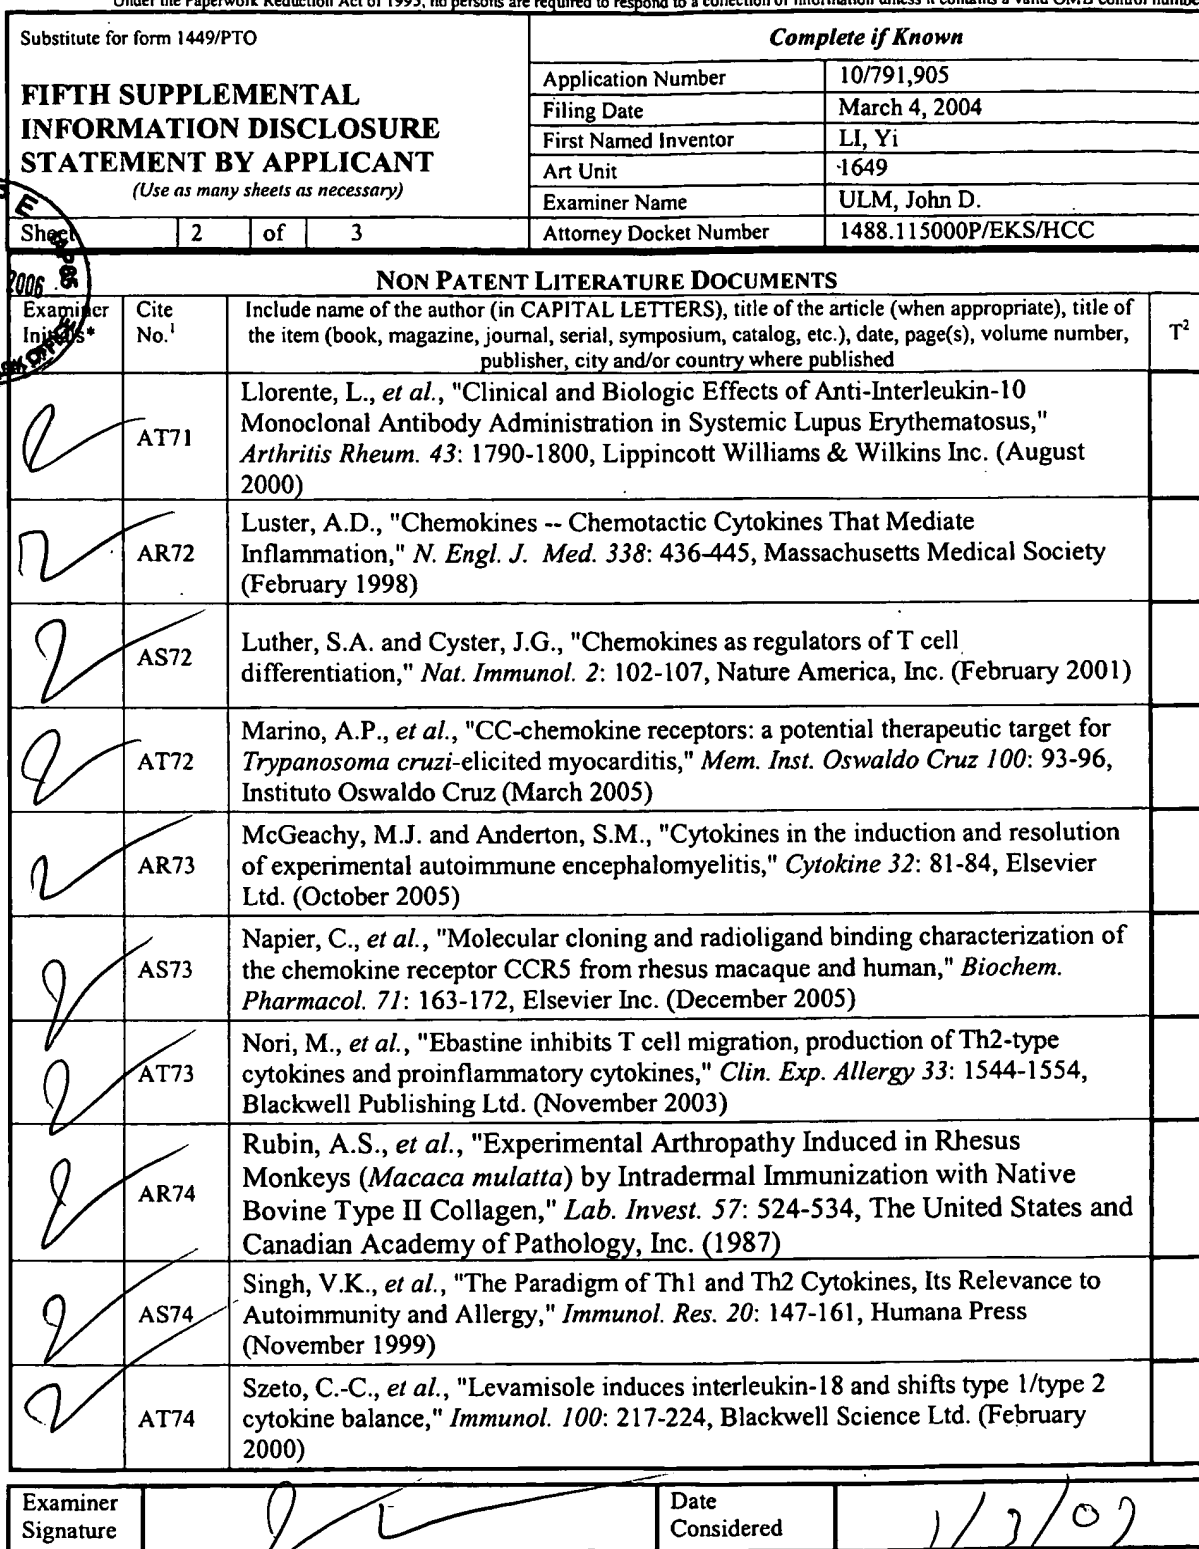 Under the Paperwork Reduction Act of 1995, no persons are required to respond to a collection of information unless it contains a valid OMB control number
Substitute for form 1449/PTO
FIFTH SUPPLEMENTAL
INFORMATION DISCLOSURE
STATEMENT BY APPLICANT
(Use as many sheets as necessary)
Sheet 2 of 3
Complete if Known
Application Number 10/791,905
Filing Date March 4, 2004
First Named Inventor LI, Yi
Art Unit 1649
Examiner Name ULM, John D.
Attorney Docket Number 1488.115000P/EKS/HCC
2006
NON PATENT LITERATURE DOCUMENTS
Examiner
Initials*
Cite
No.1
Include name of the author (in CAPITAL LETTERS), title of the article (when appropriate), title of
the item (book, magazine, journal, serial, symposium, catalog, etc.), date, page(s), volume number,
publisher, city and/or country where published
T2
AT71
Llorente, L., et al., "Clinical and Biologic Effects of Anti-Interleukin-10
Monoclonal Antibody Administration in Systemic Lupus Erythematosus,"
Arthritis Rheum. 43: 1790-1800, Lippincott Williams & Wilkins Inc. (August
2000)
AR72
Luster, A.D., "Chemokines -- Chemotactic Cytokines That Mediate
Inflammation," N. Engl. J. Med. 338: 436-445, Massachusetts Medical Society
(February 1998)
AS72
Luther, S.A. and Cyster, J.G., "Chemokines as regulators of T cell
differentiation," Nat. Immunol. 2: 102-107, Nature America, Inc. (February 2001)
AT72
Marino, A.P., et al., "CC-chemokine receptors: a potential therapeutic target for
Trypanosoma cruzi-elicited myocarditis," Mem. Inst. Oswaldo Cruz 100: 93-96,
Instituto Oswaldo Cruz (March 2005)
AR73
McGeachy, M.J. and Anderton, S.M., "Cytokines in the induction and resolution
of experimental autoimmune encephalomyelitis," Cytokine 32: 81-84, Elsevier
Ltd. (October 2005)
AS73
Napier, C., et al., "Molecular cloning and radioligand binding characterization of
the chemokine receptor CCR5 from rhesus macaque and human," Biochem.
Pharmacol. 71: 163-172, Elsevier Inc. (December 2005)
AT73
Nori, M., et al., "Ebastine inhibits T cell migration, production of Th2-type
cytokines and proinflammatory cytokines," Clin. Exp. Allergy 33: 1544-1554,
Blackwell Publishing Ltd. (November 2003)
AR74
Rubin, A.S., et al., "Experimental Arthropathy Induced in Rhesus
Monkeys (Macaca mulatta) by Intradermal Immunization with Native
Bovine Type II Collagen," Lab. Invest. 57: 524-534, The United States and
Canadian Academy of Pathology, Inc. (1987)
AS74
Singh, V.K., et al., "The Paradigm of Th1 and Th2 Cytokines, Its Relevance to
Autoimmunity and Allergy," Immunol. Res. 20: 147-161, Humana Press
(November 1999)
AT74
Szeto, C.-C., et al., "Levamisole induces interleukin-18 and shifts type 1/type 2
cytokine balance," Immunol. 100: 217-224, Blackwell Science Ltd. (February
2000)
Examiner
Signature
Date
Considered